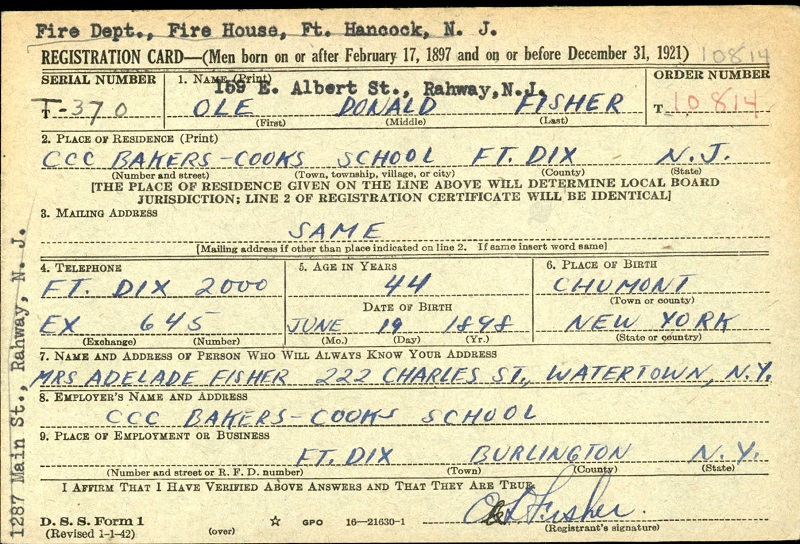 Fire Dept., Fire House, Ft. Hancock, N. J.
REGISTRATION CARD—(Men born on or after February 17, 1897 and on or before December 31, 1921) 10814
SERIAL NUMBER
T-370
1. NAME (Print)
159 E. Albert St., Rahway, N.J.
OLE DONALD FISHER
(First) (Middle) (Last)
ORDER NUMBER
T 10814
2. PLACE OF RESIDENCE (Print)
CCC BAKERS-COOKS SCHOOL FT. DIX N.J.
(Number and street) (Town, township, village, or city) (County) (State)
[THE PLACE OF RESIDENCE GIVEN ON THE LINE ABOVE WILL DETERMINE LOCAL BOARD
JURISDICTION; LINE 2 OF REGISTRATION CERTIFICATE WILL BE IDENTICAL]
3. MAILING ADDRESS
SAME
[Mailing address if other than place indicated on line 2. If same insert word same]
4. TELEPHONE
FT. DIX 2000
EX 645
(Exchange) (Number)
5. AGE IN YEARS
44
DATE OF BIRTH
JUNE 19 1898
(Mo.) (Day) (Yr.)
6. PLACE OF BIRTH
CHUMONT
(Town or county)
NEW YORK
(State or country)
7. NAME AND ADDRESS OF PERSON WHO WILL ALWAYS KNOW YOUR ADDRESS
MRS ADELADE FISHER 222 CHARLES ST., WATERTOWN, N.Y.
8. EMPLOYER'S NAME AND ADDRESS
CCC BAKERS-COOKS SCHOOL
9. PLACE OF EMPLOYMENT OR BUSINESS
FT. DIX BURLINGTON N.Y.
(Number and street or R. F. D. number) (Town) (County) (State)
I AFFIRM THAT I HAVE VERIFIED ABOVE ANSWERS AND THAT THEY ARE TRUE.
Fisher.
D. S. S. Form 1
(Revised 1-1-42) (over) ☆ GPO 16—21630-1 (Registrant's signature)
1287 Main St., Rahway, N. J.